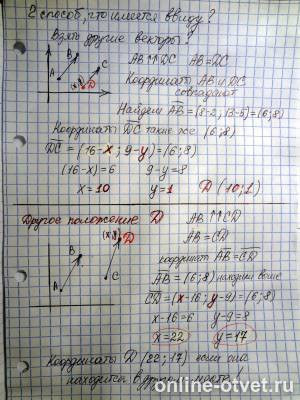 2 способ, что имеется ввиду?
Взять другие векторы?
AB ↑↑ DC AB = DC
Координаты AB и DC
совпадают
B
A
C
(x,y) D
Найдем AB = (8-2, 13-5) = (6; 8)
Координаты DC такие же (6; 8)
DC = (16-x; 9-y) = (6; 8)
(16-x) = 6 9-y = 8
x = 10 y = 1 D (10; 1)
Другое положение D AB ↑↑ CD
(x,y) D
B
A
C
AB = CD
координат AB = CD
AB = (6; 8) находили выше
CD = (x-16; y-9) = (6; 8)
x-16 = 6 y-9 = 8
x = 22 y = 17
Координаты D (22; 17) если она
находится в другом месте!
online-otvet.ru